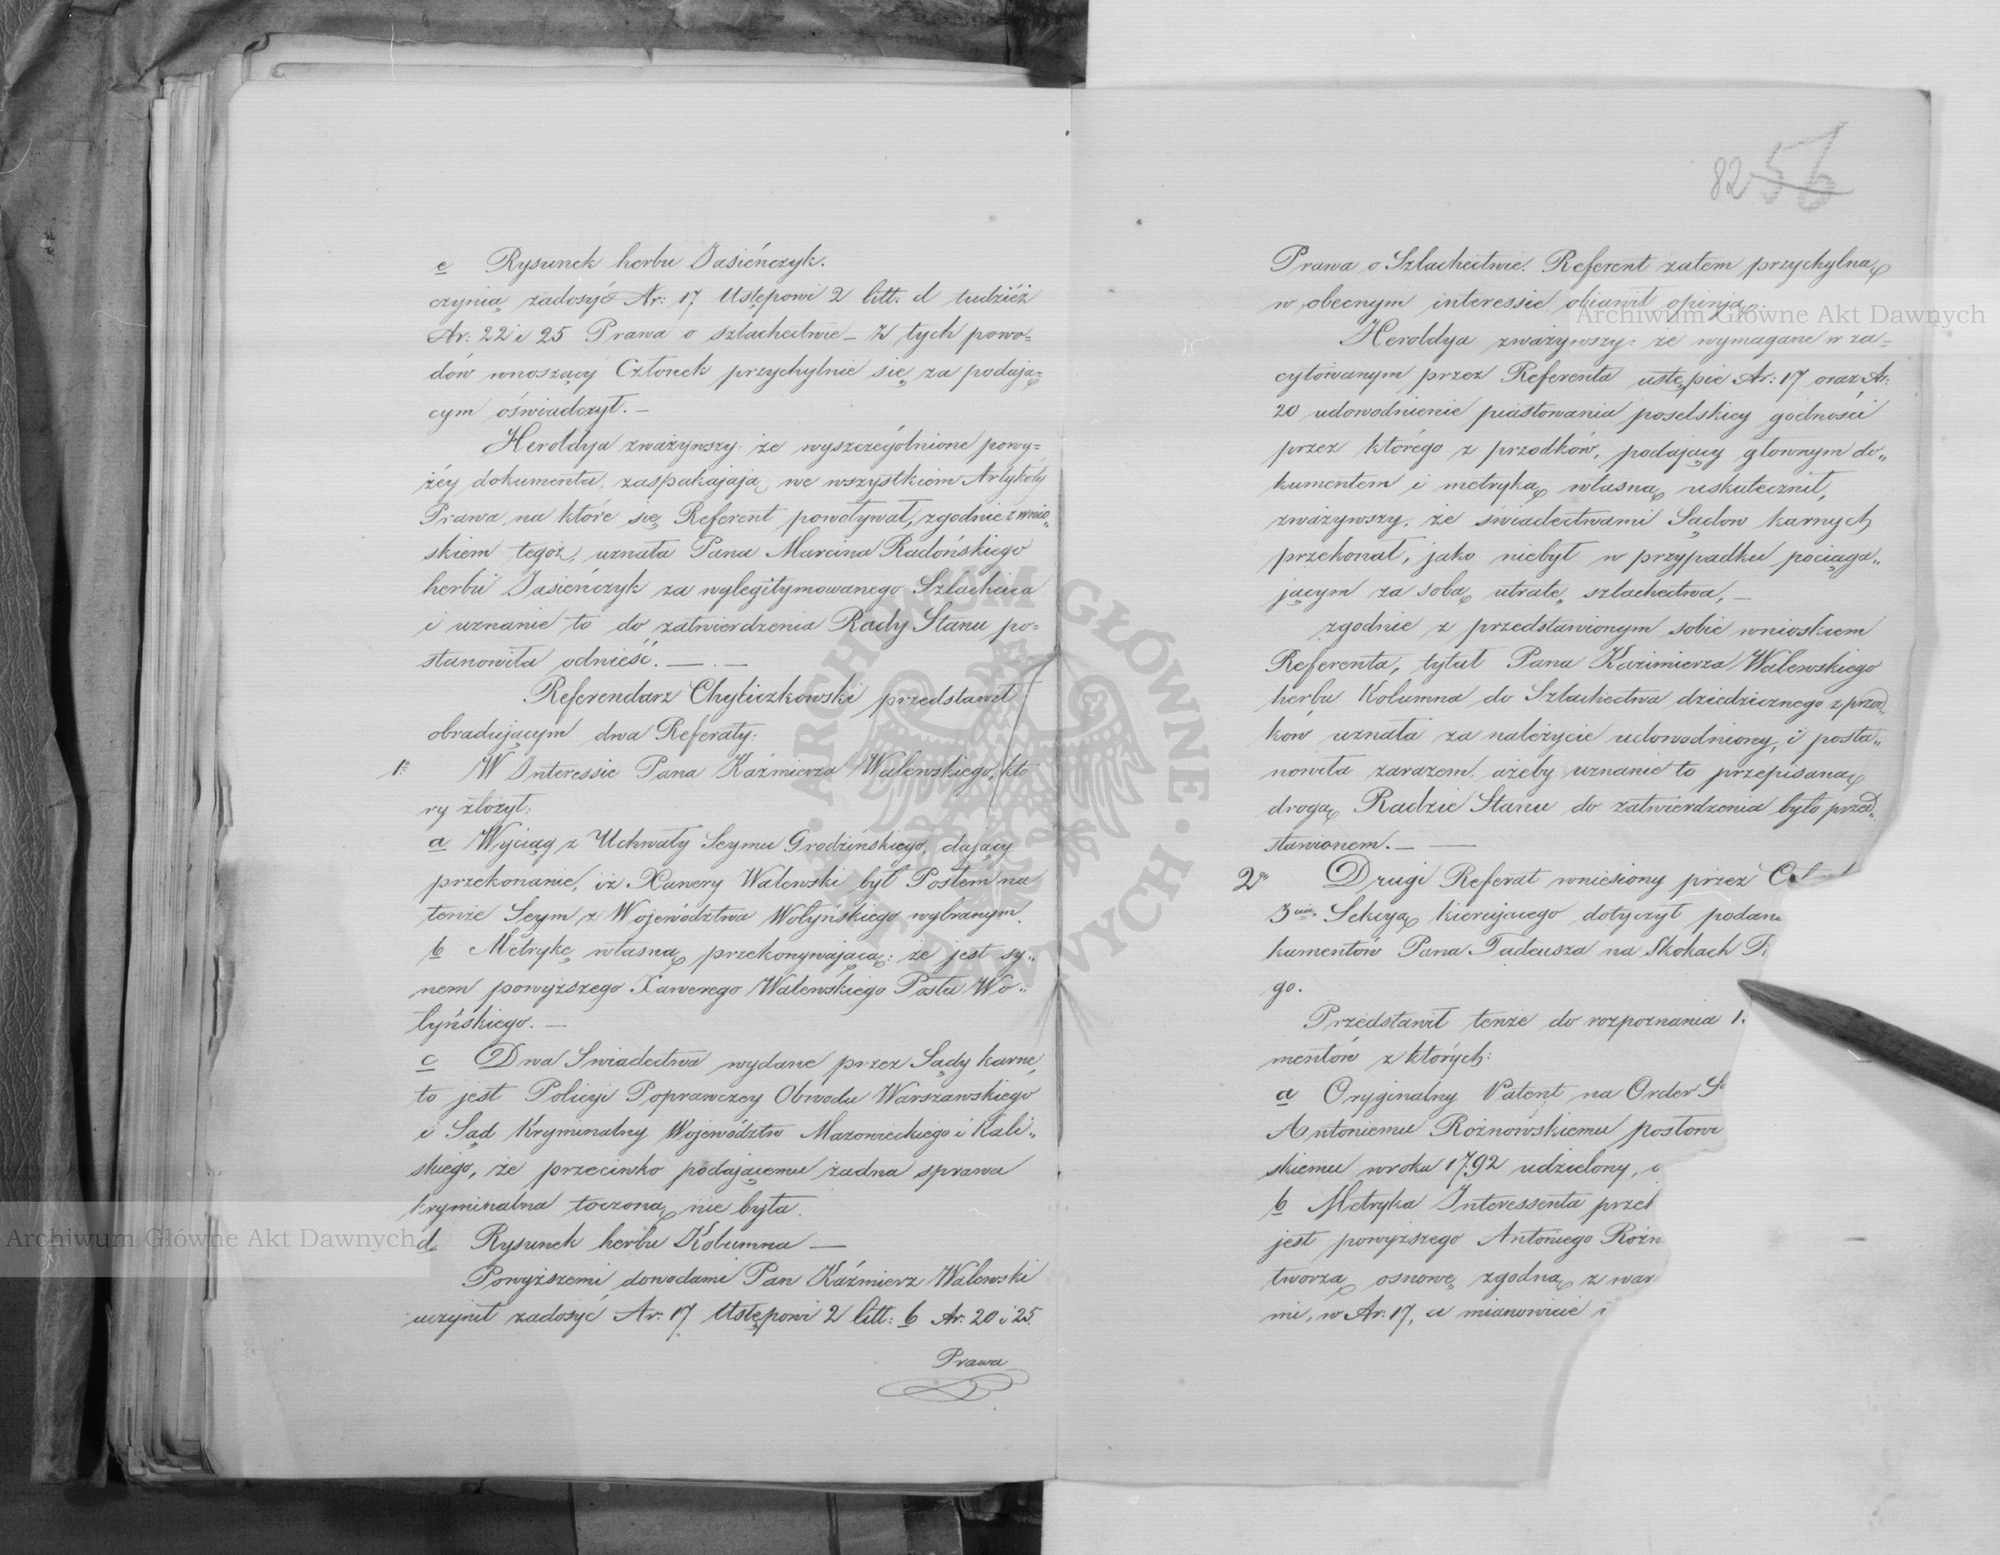 e Rysunek herbu Jasieńczyk.
czynią zadosyć Ar: 17 Ustępowi 2 litt. d tudzież
Ar: 22 i 25 Prawa o szlachectwie – Z tych powo=
dów wnoszący Członek przychylnie się za podają=
cym oświadczył. –
Heroldya zważywszy: że wyszczególnione powy=
żéy dokumenta, zaspakajają we wszystkiem Artykóły
Prawa, na które się Referent powoływał, zgodnie z wnio„
skiem tegoż, uznała Pana Marcina Radońskiego
herbu Jasieńczyk za wylegitymowanego Szlachcica
i uznanie to do zatwierdzenia Rady Stanu po=
stanowiła odnieść. — . —
Referendarz Chyliczkowski przedstawił
obradującym dwa Referaty:
1º W Interessie Pana Kaźmierza Walewskiego, któ
ry złożył:
a Wyciąg z Uchwały Seymu Grodzińskiego, dający
przekonanie, iż Xawery Walewski był Posłem na
tenże Seym z Województwa Wołyńskiego wybranym.
b Metrykę własną przekonywającą: że jest sy„
nem powyższego Xawerego Walewskiego Posła Wo„
łyńskiego. —
c Dwa Swiadectwa wydane przez Sądy karne,
to jest Policyi Poprawczey Obwodu Warszawskiego
i Sąd Kryminalny Województw Mazowieckiego i Kali„
skiego, że przeciwko podającemu żadna sprawa
kryminalna toczoną nie była.
d. Rysunek herbu Kolumna —
Powyższemi dowodami Pan Kaźmierz Walewski
uczynił zadosyć Ar: 17 Ustępowi 2 litt: b Ar: 20 i 25.
Prawa
82 56
Prawa o Szlachectwie. Referent zatem przychylną
w obecnym interessie objawił opinję.
Heroldya zważywszy: że wymagane w za=
cytowanym przez Referenta ustępie Ar: 17 oraz Ar:
20 udowodnienie piastowania poselskiey godności
przez którego z przodków, podający głownym do„
kumentem i metryką własną uskutecznił,
zważywszy, że świadectwami Sądow karnych
przekonał, jako niebył w przypadku pociąga„
jącym za sobą utratę szlachectwa, —
zgodnie z przedstawionym sobie wnioskiem
Referenta, tytuł Pana Kazimierza Walewskiego
herbu Kolumna do Szlachectwa dziedzicznego z przod„
ków uznała za należycie udowodniony, i posta„
nowiła zarazem, ażeby uznanie to przepisaną
drogą Radzie Stanu do zatwierdzenia było przed„
stawionem. — —
2º Drugi Referat wniesiony przez
3cią Sekcyą kierującego dotyczył podan
kumentów Pana Tadeusza na Skokach
go.
Przedstawił tenże do rozpoznania 1.
mentów z których:
a Oryginalny Patent na Order S
Antoniemu Rożnowskiemu posłowi
skiemu w roku 1792 udzielony,
b Metryka Interessenta przek
jest powyższego Antoniego Rożn
tworzą osnowę zgodną z war
mi, w Ar: 17, a mianowicie
Archiwum Główne Akt Dawnych
Archiwum Główne Akt Dawnych
ARCHIWUM GŁÓWNE AKT DAWNYCH